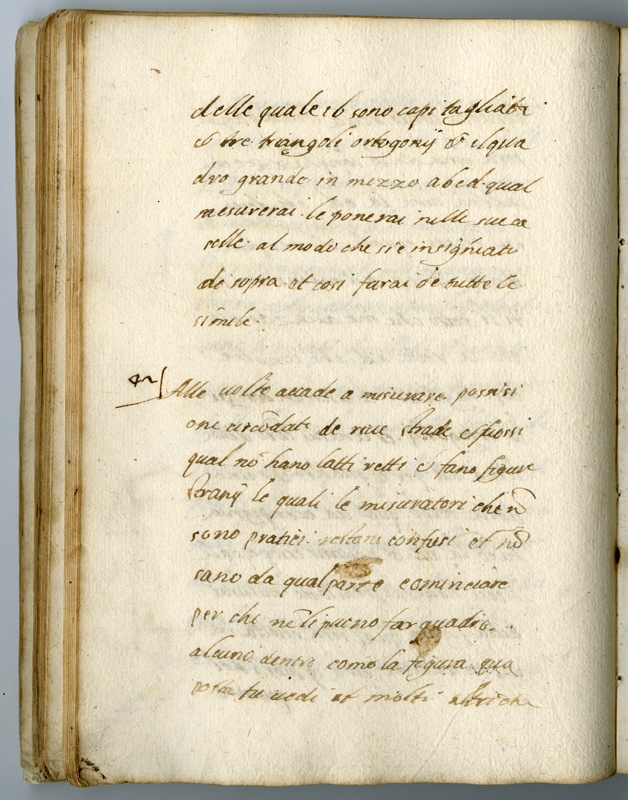 delle quale ib sono capi tagliatti
et tre triangoli ortogonij et il qua
dro grande in mezzo abcd qual
mesurerai le ponerai nelle sue ca
selle al modo che si e insigniato
de sopra et cosi farai de tutte le
simile.
Alle uolte accade a misurare possesi
one circōdate de riue strade et fiossi
qual nō hano latti retti et fano figure
stranij le quali le misuratori che nō
sono pratici restano confusi et nō
sano da qual parte cominciare
per che nō li pueno far quadro
alcuno dentro como la figura qua
posta tu uedi et molti altri che